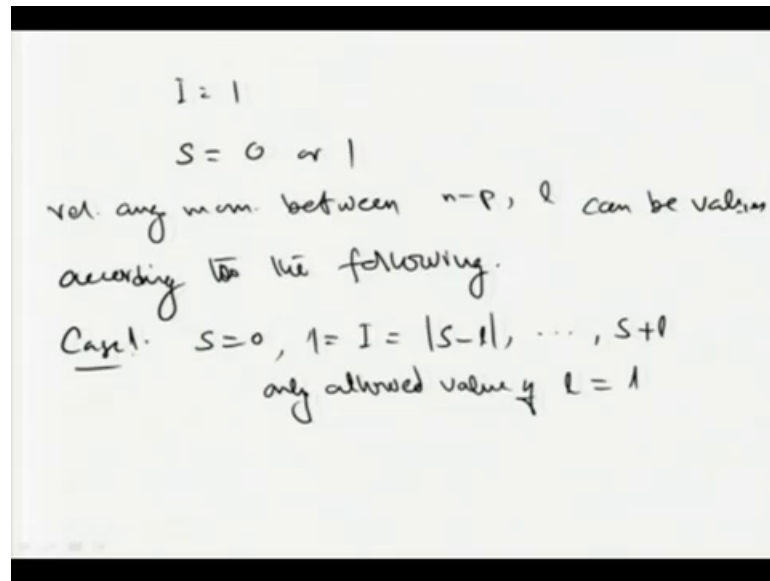 I = 1
S = 0 or 1
rel. ang mom. between n-p, l can be values
according to the following.
Case 1. S=0, 1= I = |S-l|, ..., S+l
only allowed value of l = 1